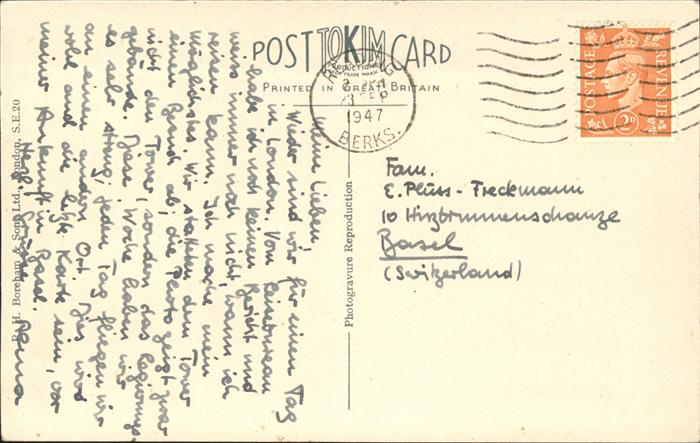 POST CARD
TOKIM
Productions
TRADE MARK
PRINTED IN GREAT BRITAIN
READING
SEP
1947
BERKS.
POSTAGE
REVENUE
2D
Fam.
E. Pluss - Fleckmann
10 Hirzbrunnenschanze
Basel
(Switzerland)
Photogravure Reproduction
R. H. Boreham & Sons Ltd., London, S.E.20
Meine Lieben,
Wieder sind wir für einen Tag
in London. Vom
habe ich noch keinen Bericht und
weiss immer noch nicht, wann ich
reisen kann. Ich mache mein
Möglichstes. Wir statteten dem Tower
einen Besuch ab; die Photo zeigt zwar
nicht den Tower, sondern das Regierungs-
gebäude. Diese Woche haben wir
es sehr streng; jeden Tag fliegen wir
an einen andern Ort. Dies wird
wohl auch die letzte Karte sein, vor
meiner Ankunft in Basel.
Herzl. Grüsse